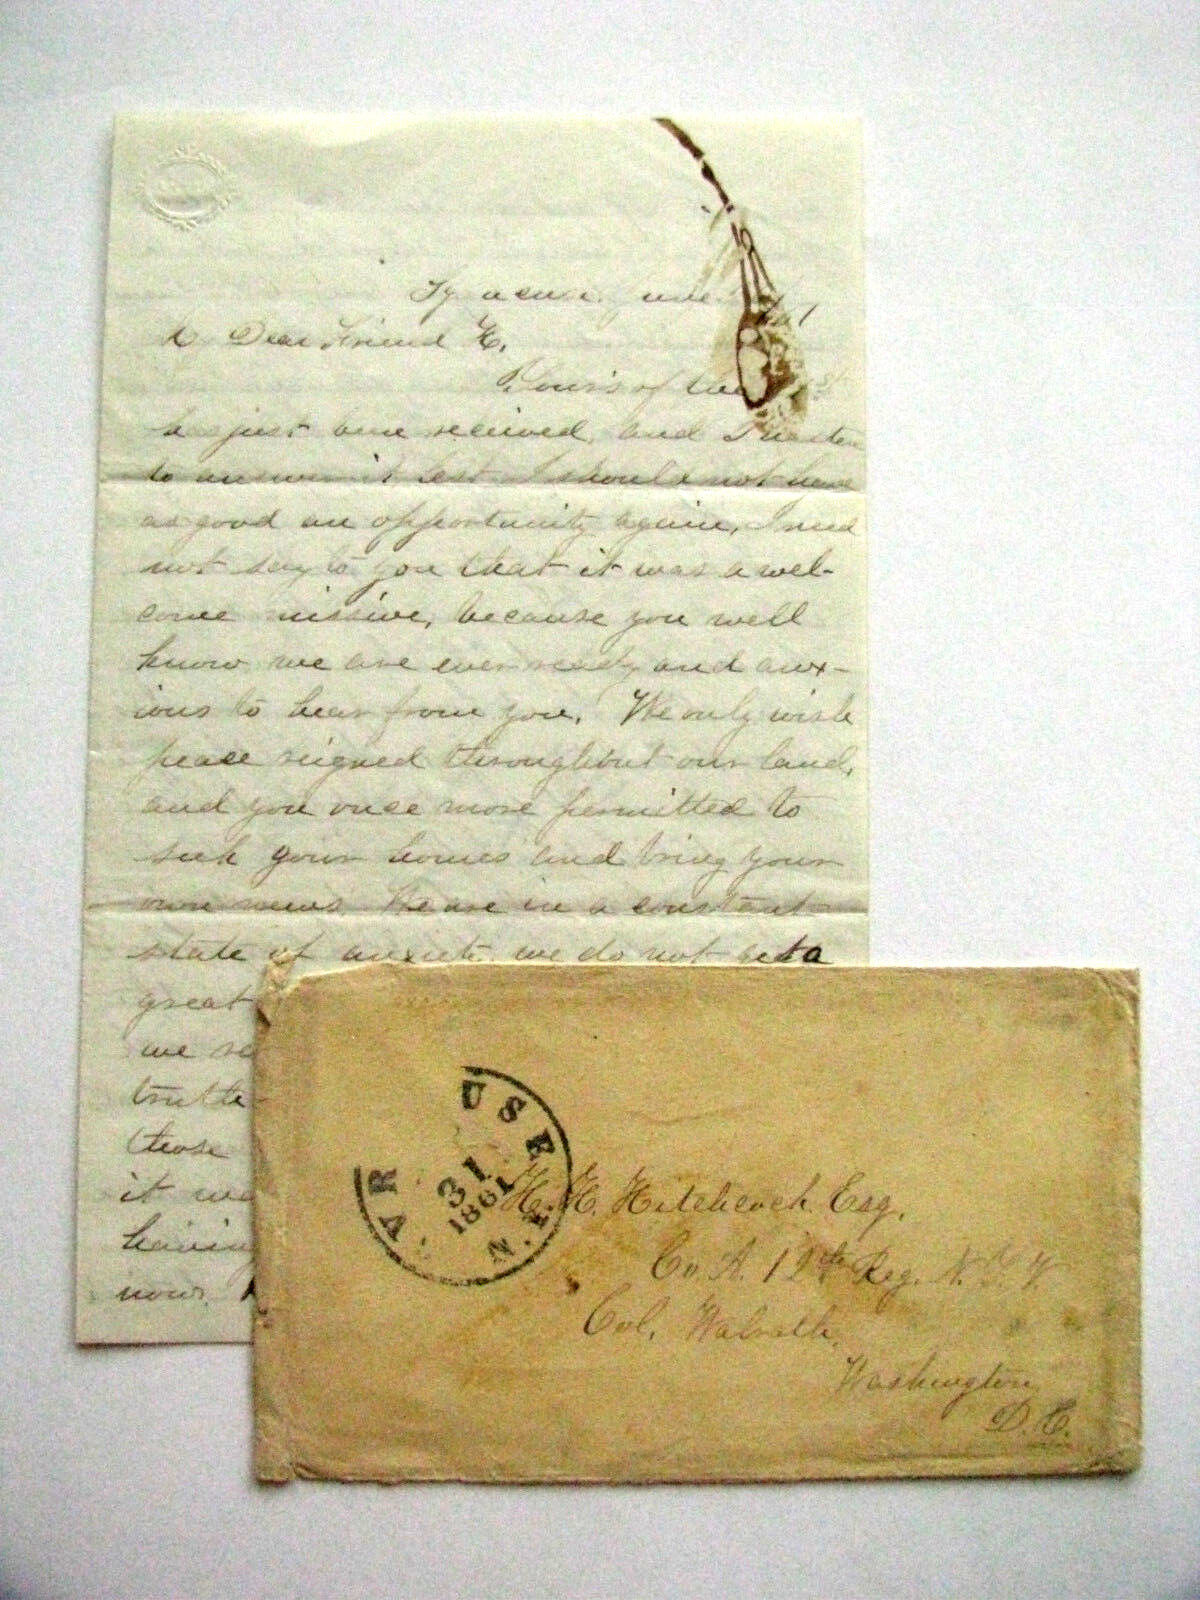 Syracuse June
Dear Friend H,
Your's of the
has just been recieved, and I hasten
to answer it lest I should not have
as good an opportunity again, I need
not say to you that it was a wel-
come missive, because you well
know we are ever ready and anx-
ious to hear from you. We only wish
peace reigned throughout our land,
and you once more permitted to
seek your homes and bring your
own news. We are in a constant
state of anxiety, we do not get a
great
we
truth
those
it
having
now.
SYRACUSE N.Y.
31
1861
H. H. Hitchcock Esq.
Co. A. 12th Reg. N.Y.V
Col. Walrath,
Washington
D.C.